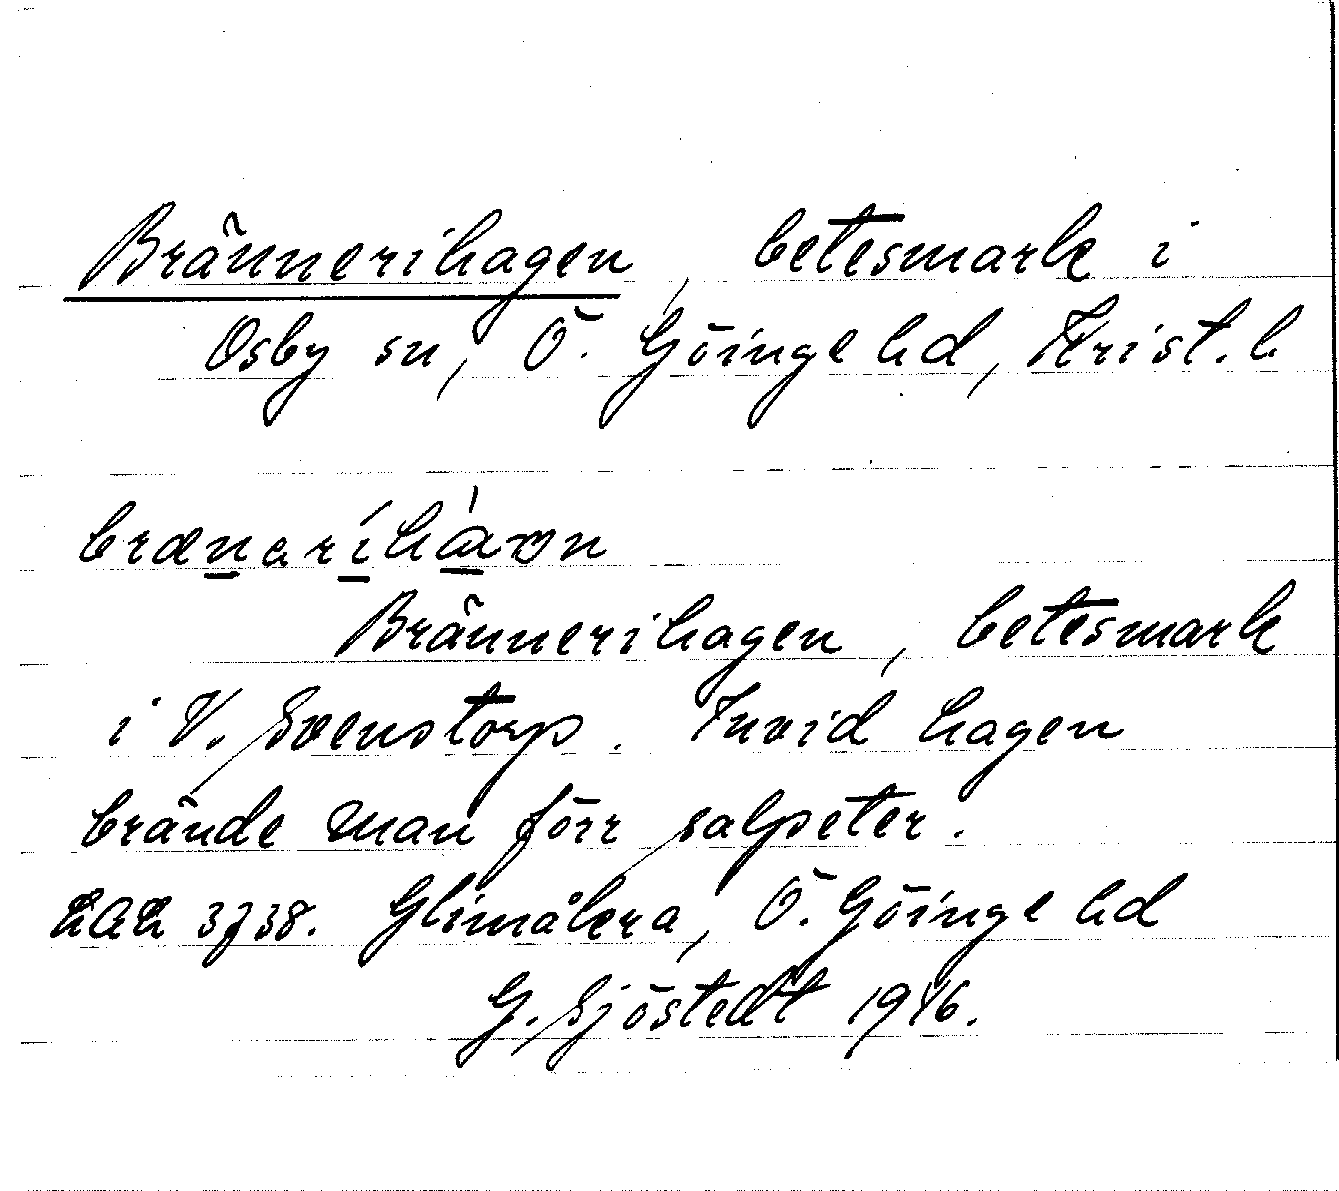 Brännerihagen, betesmark i
Osby sn, Ö. Göinge hd, Krist. l.
Brännerihagen, betesmark
i V. Svenstorp. Invid hagen
brände man förr salpeter.
3738. Glimåkra, Ö. Göinge hd
G. Sjöstedt 1946.